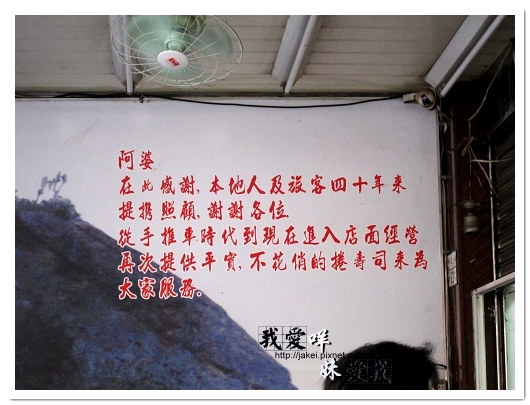 阿婆
在此感謝, 本地人及旅客四十年來
提携照顧, 謝謝各位
從手推車時代到現在進入店面經營
再次提供平實, 不花俏的捲壽司來為
大家服務.
我愛咩
http://jakei.pixnet
妹愛我